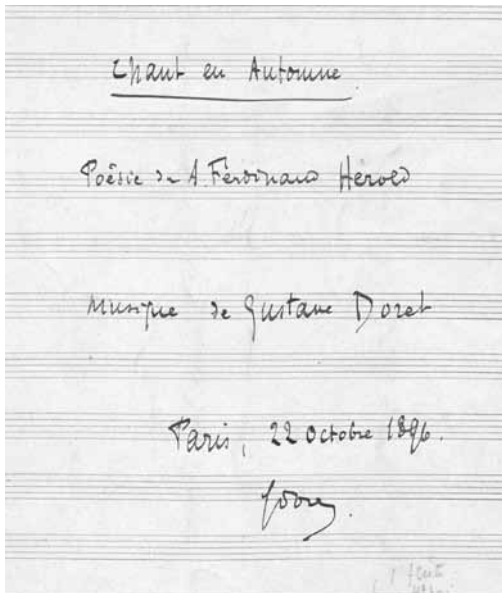 Chant en Automne
Poësie de A. Ferdinand Hérold
Musique de Gustave Doret
Paris, 22 Octobre 1896.